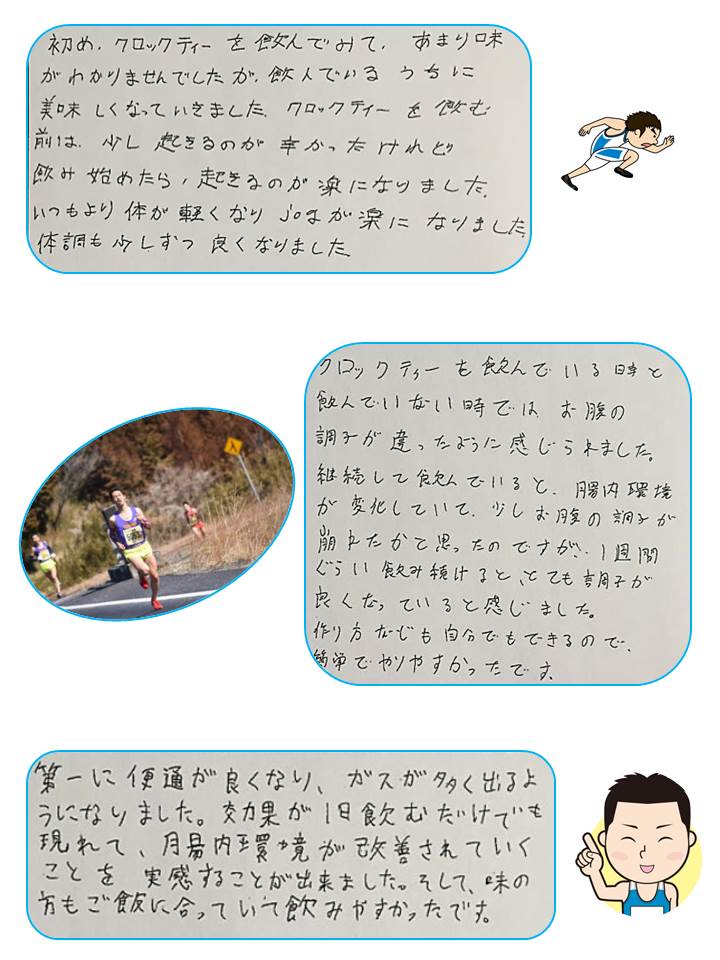 初め、クロックティーを飲んでみて、あまり味
がわかりませんでしたが、飲んでいるうちに
美味しくなっていきました。クロックティーを飲む
前は、少し起きるのが辛かったけれど
飲み始めたら、起きるのが楽になりました。
いつもより体が軽くなりjogが楽になりました。
体調も少しずつ良くなりました
クロックティーを飲んでいる時と
飲んでいない時では、お腹の
調子が違ったように感じられました。
継続して飲んでいると、腸内環境
が変化していて、少しお腹の調子が
崩れたかと思ったのですが、1週間
ぐらい飲み続けると、とても調子が
良くなっていると感じました。
作り方なども自分でもできるので、
簡単でやりやすかったです。
第一に便通が良くなり、ガスが多く出るよ
うになりました。効果が1日飲むだけでも
現れて、腸内環境が改善されていく
ことを実感することが出来ました。そして、味の
方もご飯に合っていて飲みやすかったです。